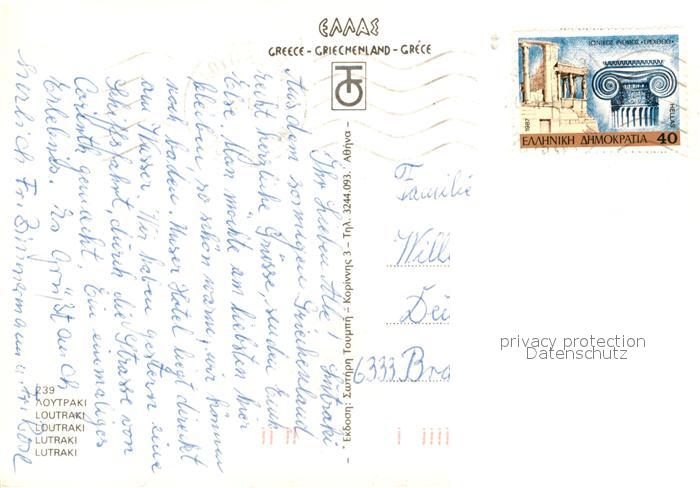 ΕΛΛΑΣ
GREECE - GRIECHENLAND - GRÈCE
ΙΩΝΙΚΟΣ ΡΥΘΜΟΣ «ΕΡΕΧΘΕΙΟ»
1987
HELLAS
ΕΛΛΗΝΙΚΗ ΔΗΜΟΚΡΑΤΙΑ 40
Ihr Lieben Alle! Lutraki
Aus dem sonnigen Griechenland
recht herzliche Grüsse, senden Euch
Man möchte am liebsten hier
bleiben so schön warm, wir können
noch baden. Unser Hotel liegt direkt
am Wasser. Wir haben gestern eine
Schiffsfahrt, durch die Strasse von
Corinth gemacht. Ein einmaliges
Erlebnis. Es grüßt auch
herzlich Fr. Zimmermann u.
Έκδοση: Σωτήρη Τουμπή - Κορίννης 3 - Τηλ. 3244.093. Αθήνα -
Familie
Will
6333 Bra
239
ΛΟΥΤΡΑΚΙ
LOUTRAKI
LOUTRAKI
LUTRAKI
LUTRAKI
privacy protection
Datenschutz